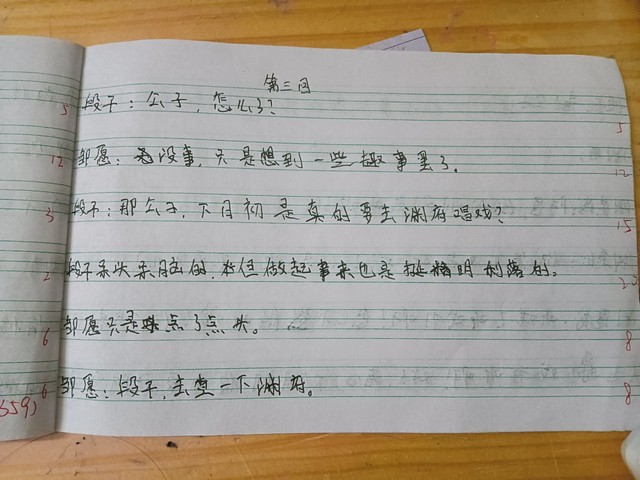 第三回
段子：公子，怎么了？
邹愿：没事，只是想到一些趣事罢了。
段子：那公子，下月初是真的要去渊府唱戏？
段子呆头呆脑的，不过做起事来也是挺精明利落的。
邹愿只是点了点头。
邹愿：段子，去查一下渊府。
5
12
3
2
6
6
559)
5
12
15
8
8